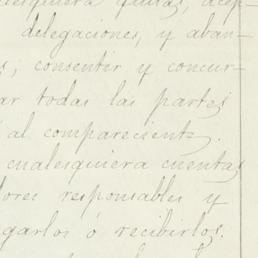 cualesquiera quitas, acep-
delegaciones, y aban-
s, consentir y concur-
ar todas las partes
al compareciente.
cualesquiera cuentas
dores responsables y
garlos ó recibirlos.